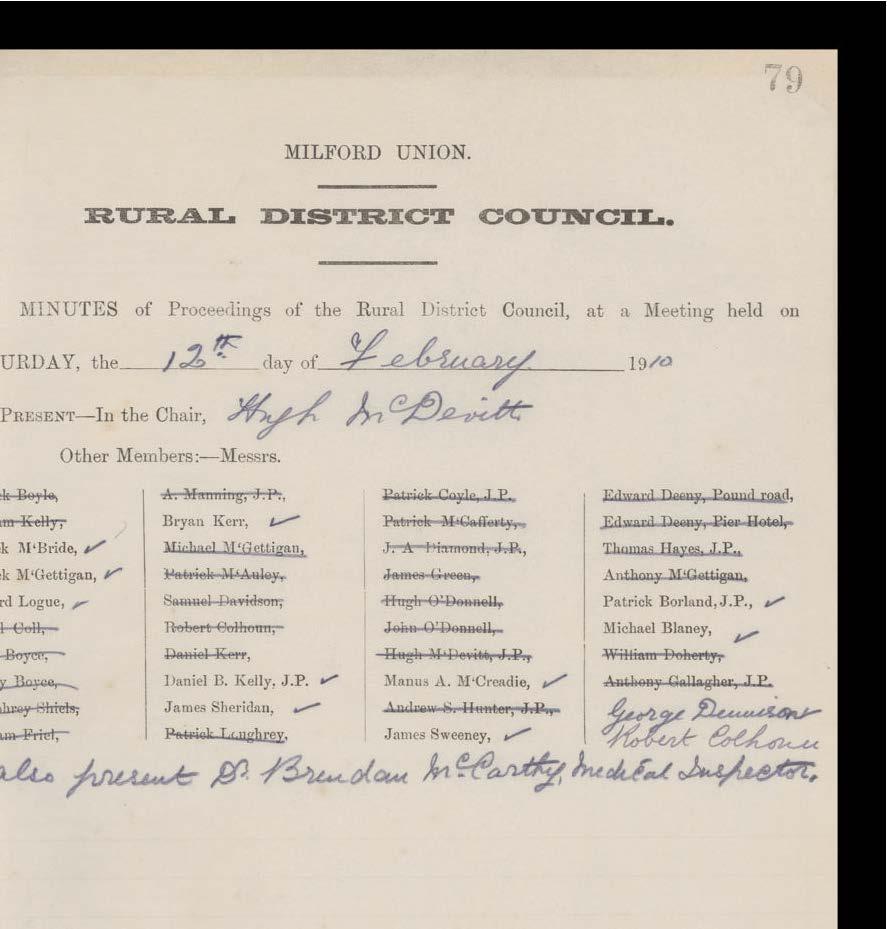 79
MILFORD UNION.
RURAL DISTRICT COUNCIL.
MINUTES of Proceedings of the Rural District Council, at a Meeting held on
URDAY, the 12th day of February 1910
PRESENT—In the Chair, Hugh McDevitt
Other Members:—Messrs.
k Boyle,
am Kelly,
k M'Bride,
k M'Gettigan,
rd Logue,
l Coll,
Boyce,
y Boyce,
phrey Shiels,
am Friel,
A. Manning, J.P.,
Bryan Kerr,
Michael M'Gettigan,
Patrick M'Auley,
Samuel Davidson,
Robert Colhoun,
Daniel Kerr,
Daniel B. Kelly, J.P.
James Sheridan,
Patrick Loughrey,
Patrick Coyle, J.P.
Patrick M'Cafferty,
J. A Diamond, J.P.,
James Green,
Hugh O'Donnell,
John O'Donnell,
Hugh M'Devitt, J.P.,
Manus A. M'Creadie,
Andrew S. Hunter, J.P.,
James Sweeney,
Edward Deeny, Pound road,
Edward Deeny, Pier Hotel,
Thomas Hayes, J.P.,
Anthony M'Gettigan,
Patrick Borland, J.P.,
Michael Blaney,
William Doherty,
Anthony Gallagher, J.P.
George Dennison
Robert Colhoun
also present Dr. Brendan McCarthy, Medical Inspector.